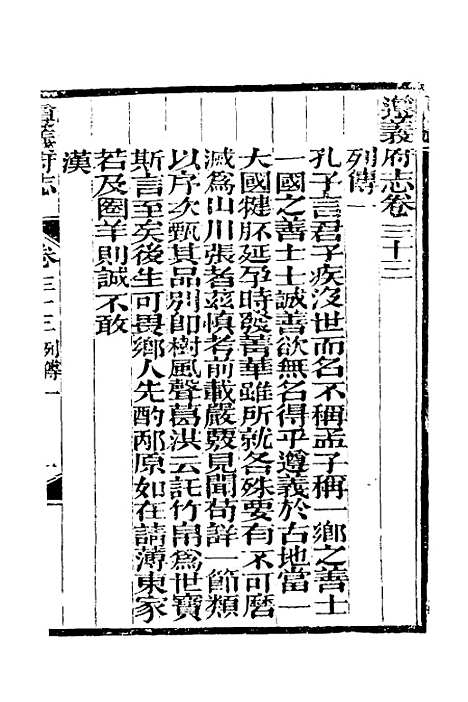 遵義府志卷三十三
列傳一
孔子言君子疾沒世而名不稱孟子稱一鄉之善士
一國之善士士誠善欲無名得乎遵義於古地當一
大國犍牂延孕時發菁華雖所就各殊要有不可磨
滅爲山川張者茲慎考前載嚴覈見聞苟詳一節類
以序次甄其品別卽樹風聲葛洪云託竹帛爲世寶
斯言至矣後生可畏鄉人先酌邴原如在請薄東家
若及圈羊則誠不敢
漢
遵義府志 卷三十三 列傳一 一